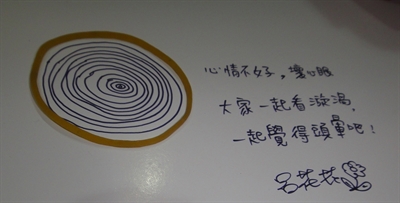 心情不好，壞心眼
大家一起看漩渦，
一起覺得頭暈吧！
呂花花